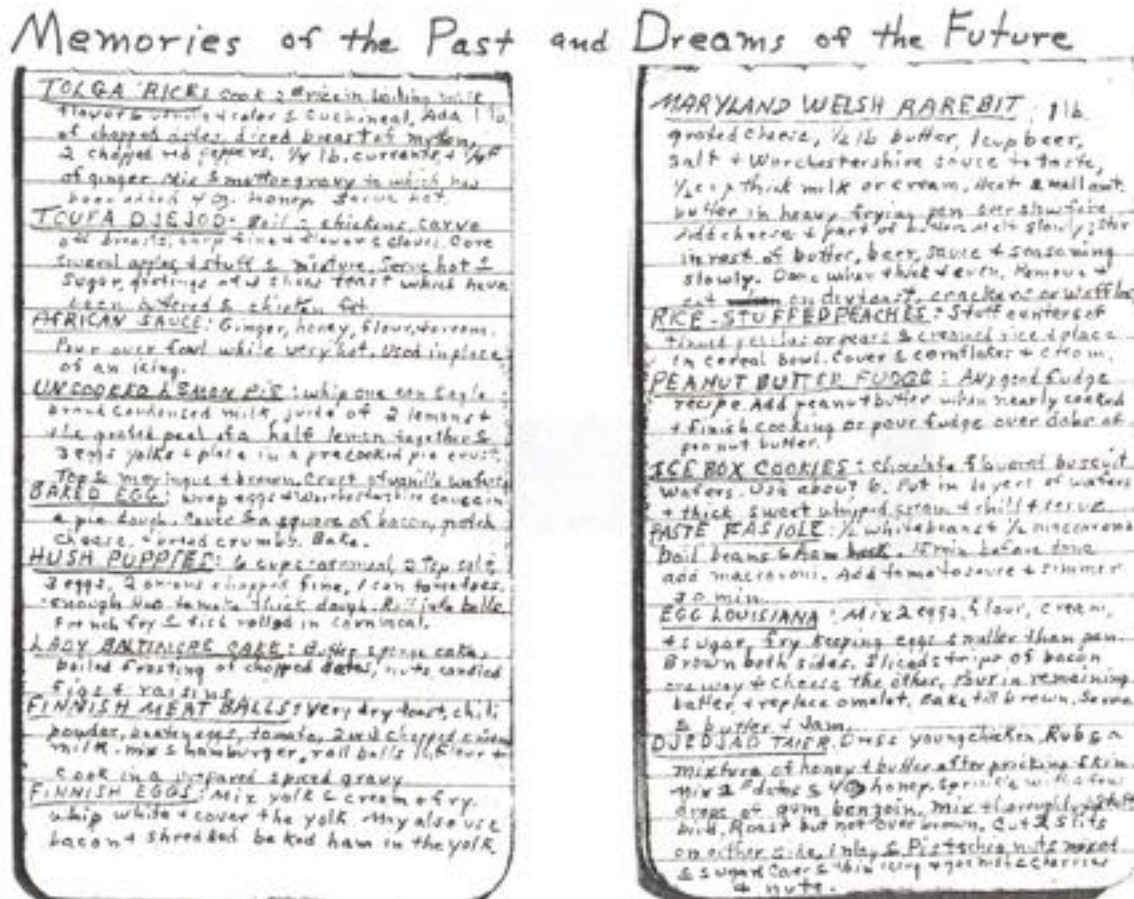 Memories of the Past and Dreams of the Future
TOLGA RICE: Cook 2 # rice in boiling milk
flavor & color & Cuchineal. Add 1 lb
of chopped dates, diced breast of mutton,
2 chopped red peppers, 1/4 lb. currants, + 1/4 #
of ginger. Mix & mutton gravy to which has
been added 4 oz. honey. Serve hot.
TCUFA DJEJOD: Boil 2 chickens, carve
off breasts, chop fine & flavor & cloves. Core
several apples + stuff & mixture. Serve hot &
Sugar, slices toast which have
been buttered & chicken fat
AFRICAN SAUCE: Ginger, honey, flour, + cream.
Pour over fowl while very hot. Used in place
of an icing.
UNCOOKED LEMON PIE: whip one can Eagle
brand Condensed milk, juice of 2 lemons +
the grated peel of a half lemon together &
3 eggs yolks + place in a precooked pie crust.
Top & meringue + brown. Crust of vanilla wafers
BAKED EGG: wrap eggs + Worchestershire sauce in
a pie dough. Cover & a square of bacon, notch
cheese, + bread crumbs. Bake.
HUSH PUPPIES: 6 cups oatmeal, 2 Tsp salt,
3 eggs, 2 onions chopped fine, 1 can tomatoes.
enough H2O to make thick dough. Roll into balls
French fry & fish rolled in cornmeal.
LADY BALTIMORE CAKE: Butter sponge cake,
boiled Frosting of chopped dates, nuts candied
figs + raisins
FINNISH MEAT BALLS: Very dry toast, chili
powder, beaten eggs, tomato, 2 red chopped onions
milk. mix & hamburger, roll balls in flour +
cook in a prepared spiced gravy
FINNISH EGGS: Mix yolk & cream + fry.
whip white + cover the yolk. May also use
bacon + shredded baked ham in the yolk.
MARYLAND WELSH RAREBIT: 1 lb
grated cheese, 1/2 lb butter, 1 cup beer,
salt + Worchestershire sauce to taste,
1/2 cup thick milk or cream. Heat small amt.
butter in heavy frying pan over slow fire
Add cheese + part of butter. Melt slowly; stir
in rest of butter, beer, sauce + seasoning
slowly. Done when thick + even. Remove +
eat on dry toast, crackers or waffles
RICE-STUFFED PEACHES: Stuff centers of
tinned peaches or pears & creamed rice + place
in cereal bowl. Cover & cornflakes + cream.
PEANUT BUTTER FUDGE: Any good fudge
recipe. Add peanut butter when nearly cooked
+ finish cooking or pour fudge over dabs of
peanut butter.
ICE BOX COOKIES: chocolate flavored buscuit
wafers. Use about 6. Put in layers of wafers
+ thick, sweet whipped cream + chill + serve
PASTE FASIOLE: 1/2 white beans + 1/2 maccaroni
boil beans & ham hock. 15 min before done
add macaroni. Add tomato sauce + simmer
30 min.
EGG LOUISIANA: Mix 2 eggs, flour, cream,
+ sugar, fry keeping eggs smaller than pan.
Brown both sides. Sliced strips of bacon
one way + cheese the other. Pour in remaining
batter, + replace omelet. Bake till brown. Serve
& butter + Jam.
DJEDJAD TAIER. Dress young chicken. Rub & a
mixture of honey + butter after pricking skin
Mix 2 # dates & 4 honey. Sprinkle with a few
drops of gum benzoin. Mix thoroughly, + stuff
bird. Roast but not over brown. Cut 2 slits
on either side, inlay & Pistachio nuts mixed
& sugar. Cover & thin icing + garnish & cherries
+ nuts.